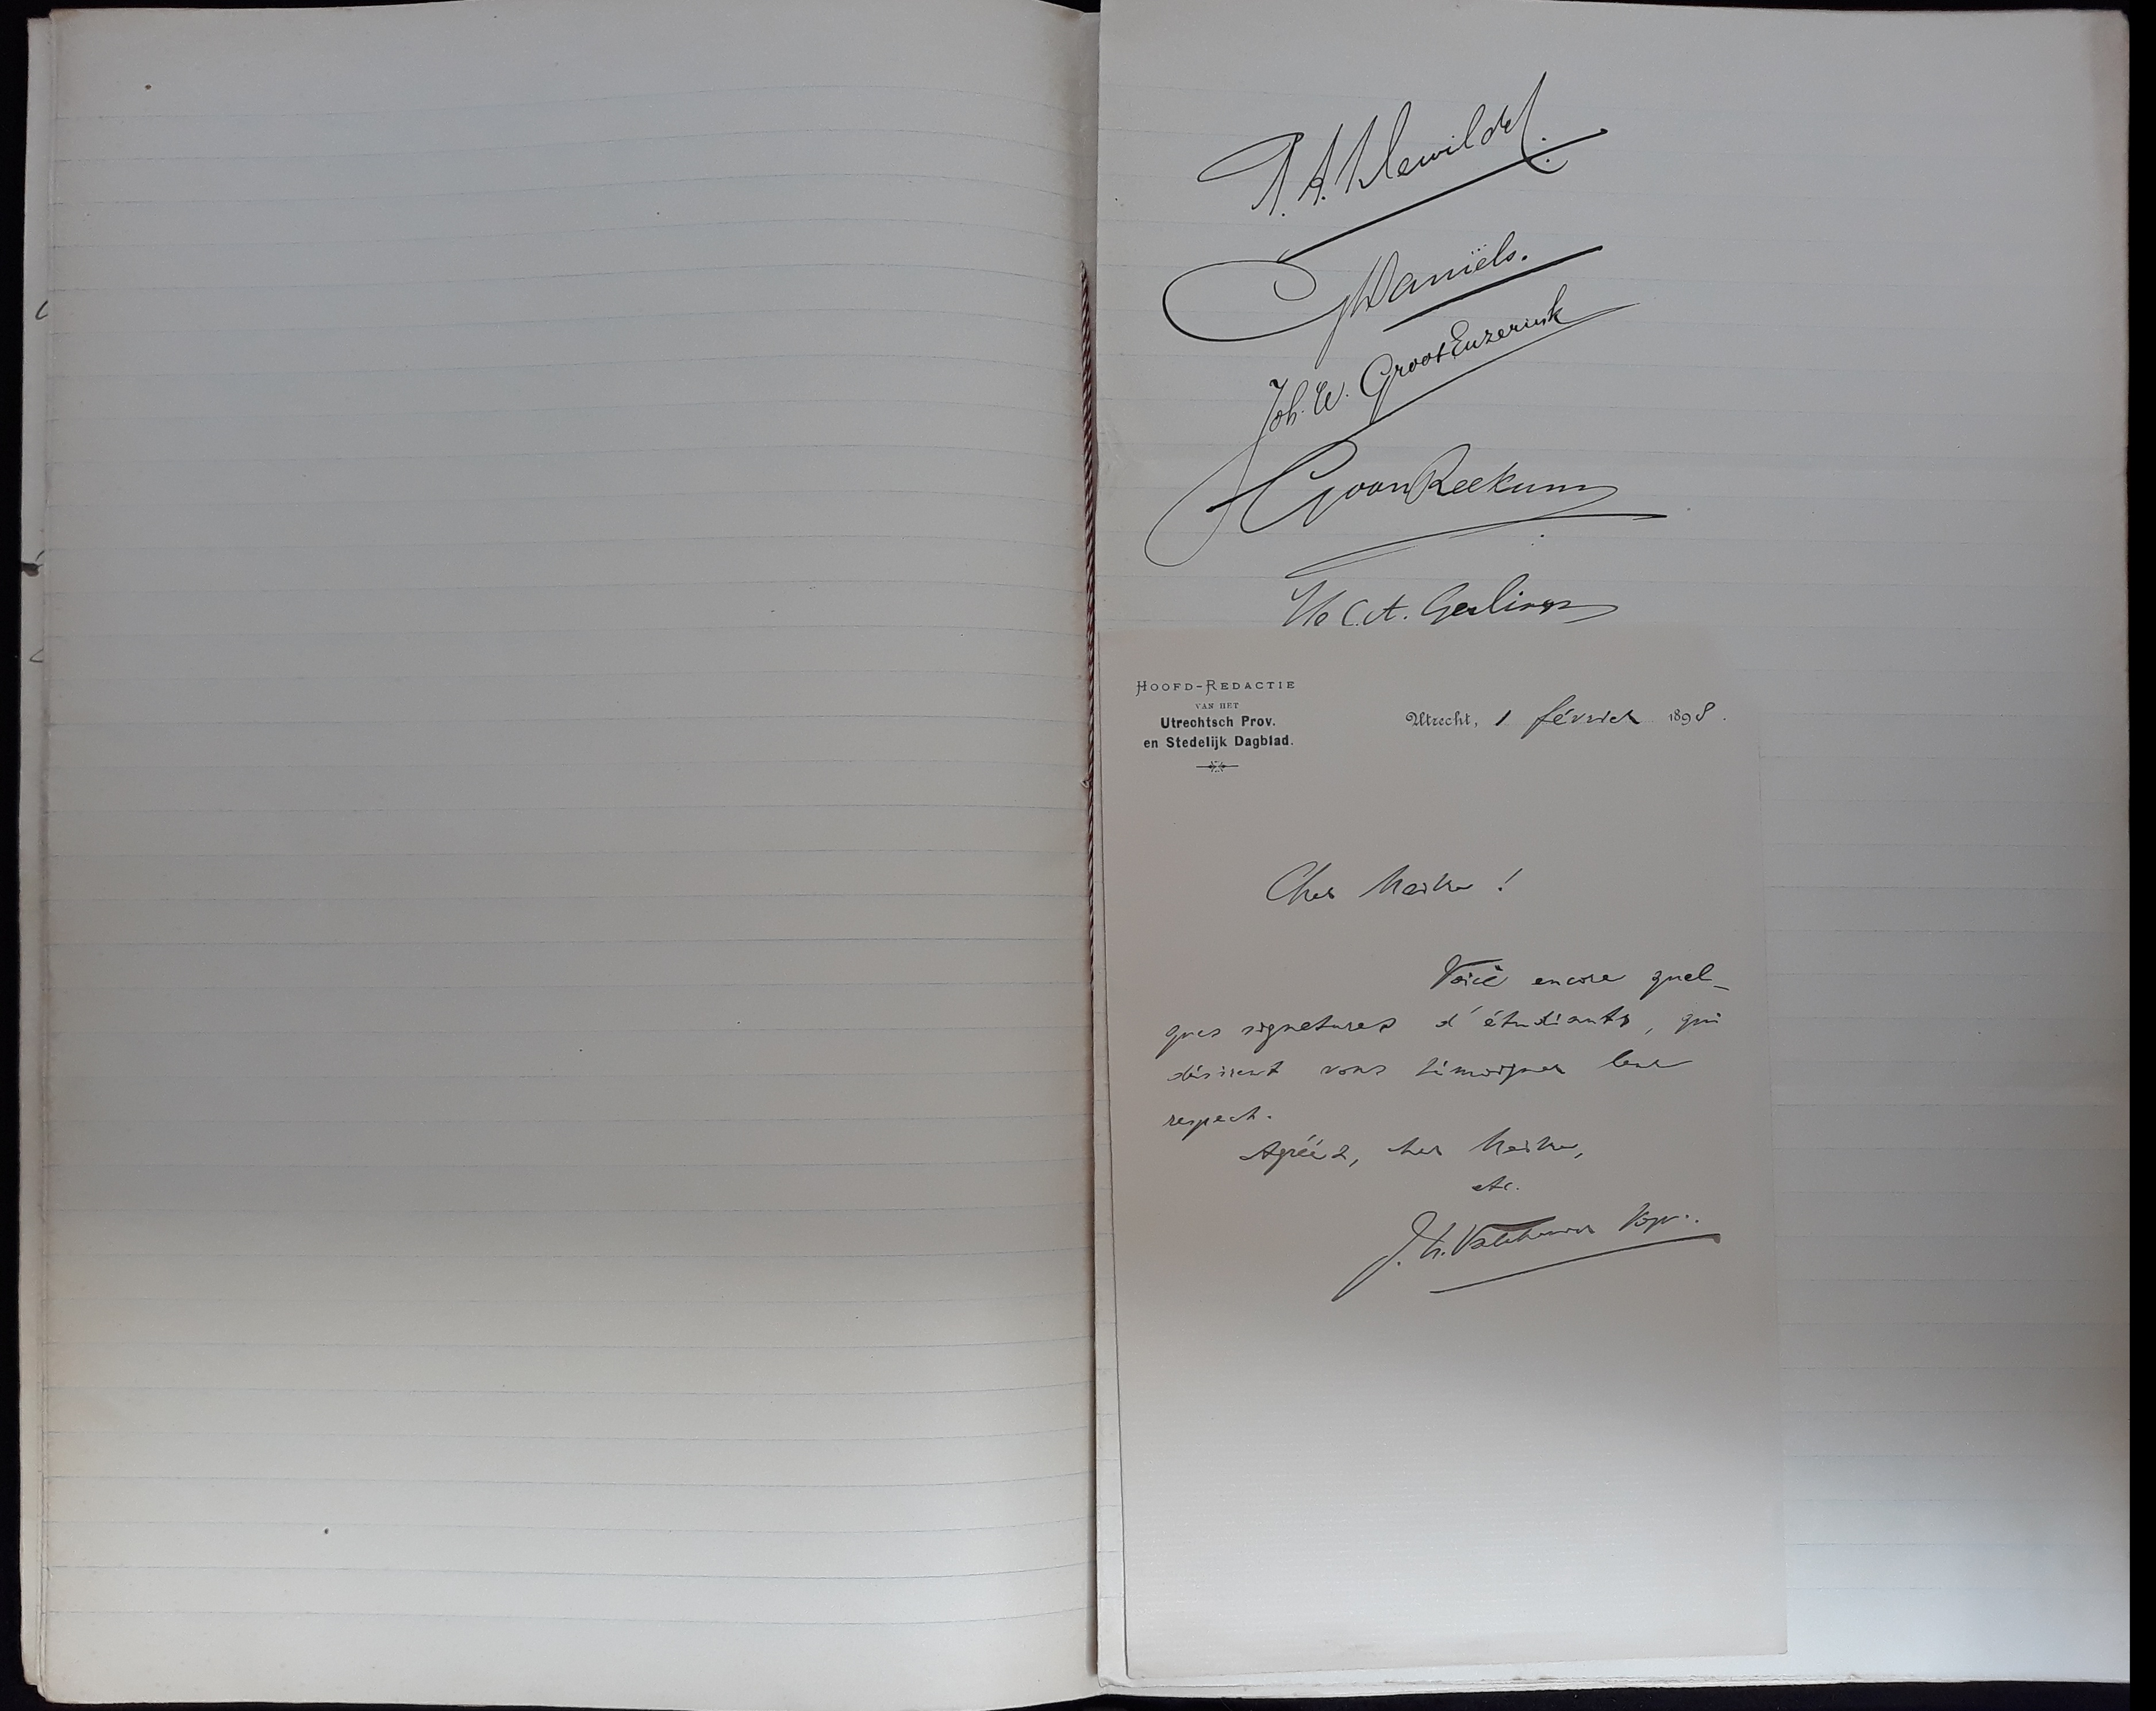 Daniëls.
Joh. W. Groot Enzerink
van Reekum
C.A. Gerlings
HOOFD-REDACTIE
VAN HET
Utrechtsch Prov.
en Stedelijk Dagblad.
Utrecht, 1 février 1898.
Cher Maître !
Voici encore quel-
ques signatures d'étudiants, qui
désirent vous témoigner leur
respect.
Agréez, cher Maître,
etc.